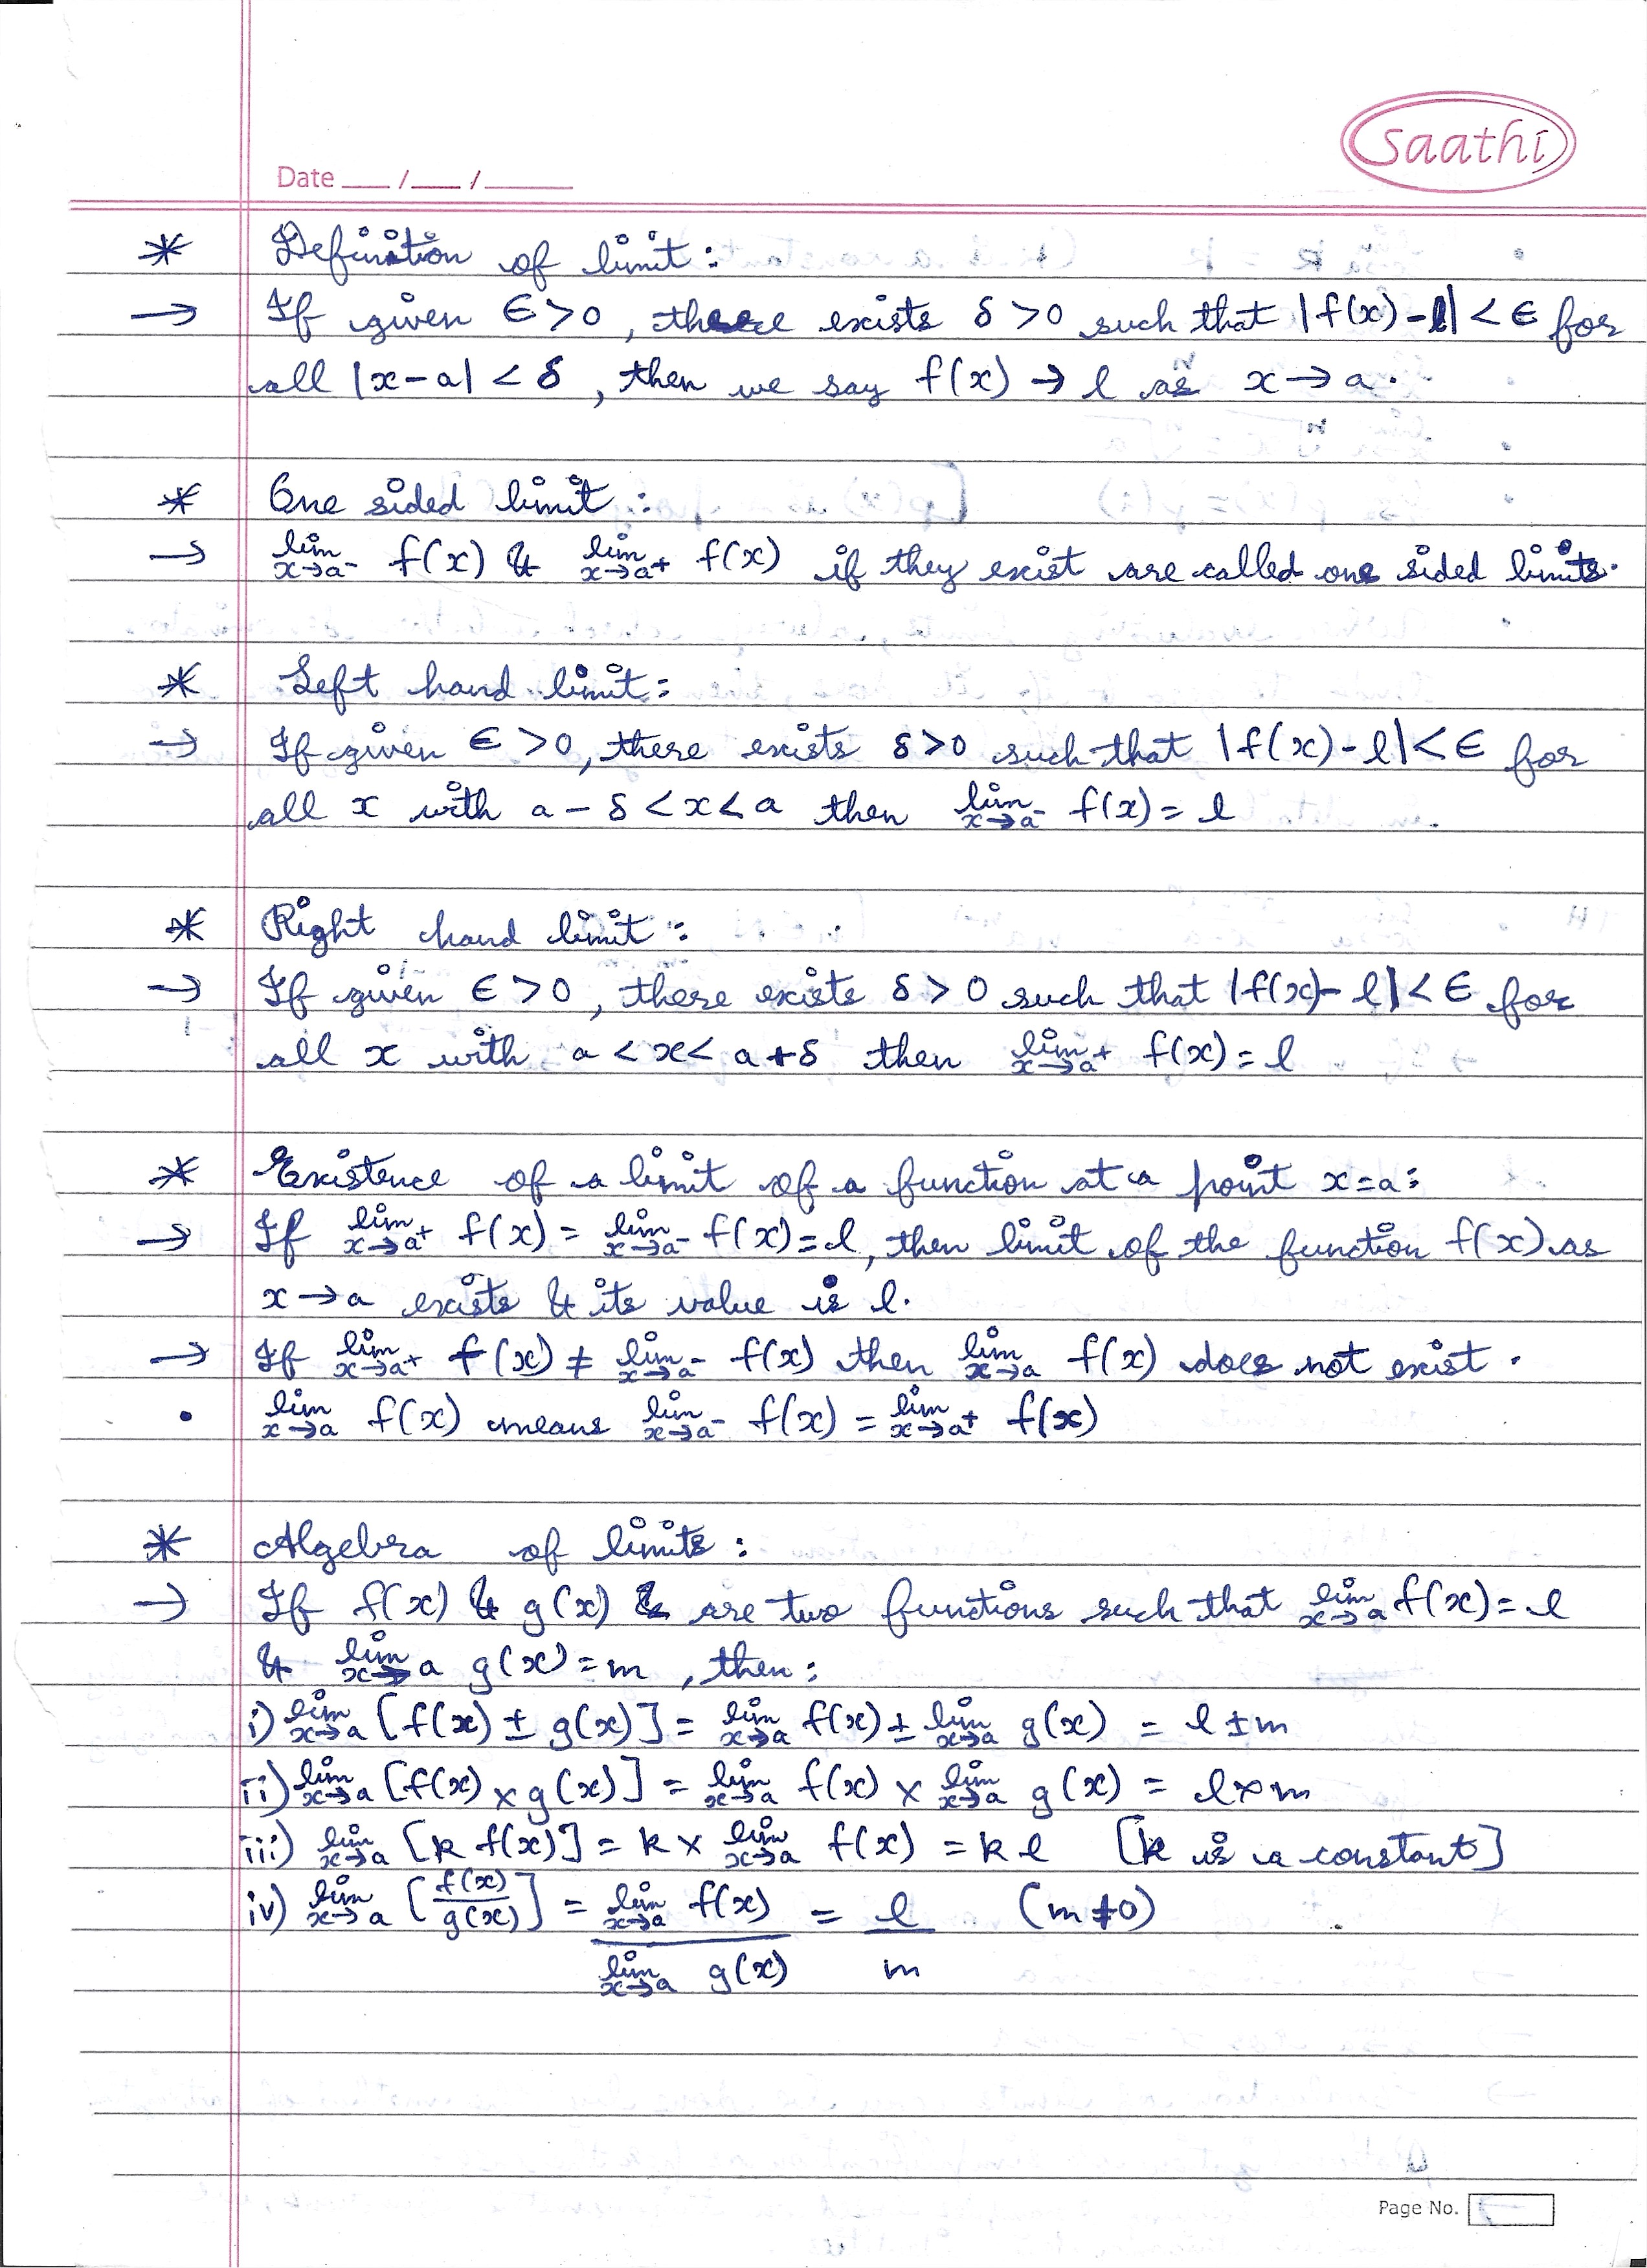 saathi
Date ___/___/______
* Definition of limit :
→ If given ε > 0 , there exists δ > 0 such that |f(x) - l| < ε for
all |x - a| < δ , then we say f(x) → l as x → a .
* One sided limit :
→ lim x→a⁻ f(x) & lim x→a⁺ f(x) if they exist are called one sided limits.
* Left hand limit :
→ If given ε > 0 , there exists δ > 0 such that |f(x) - l| < ε for
all x with a - δ < x < a then lim x→a⁻ f(x) = l
* Right hand limit :
→ If given ε > 0 , there exists δ > 0 such that |f(x) - l| < ε for
all x with a < x < a + δ then lim x→a⁺ f(x) = l
* Existence of a limit of a function at a point x = a :
→ If lim x→a⁺ f(x) = lim x→a⁻ f(x) = l , then limit of the function f(x) as
x → a exists & its value is l .
→ If lim x→a⁺ f(x) ≠ lim x→a⁻ f(x) then lim x→a f(x) does not exist .
• lim x→a f(x) means lim x→a⁻ f(x) = lim x→a⁺ f(x)
* Algebra of limits :
→ If f(x) & g(x) are two functions such that lim x→a f(x) = l
& lim x→a g(x) = m , then :
i) lim x→a [f(x) ± g(x)] = lim x→a f(x) ± lim x→a g(x) = l ± m
ii) lim x→a [f(x) × g(x)] = lim x→a f(x) × lim x→a g(x) = l × m
iii) lim x→a [k f(x)] = k × lim x→a f(x) = k l [k is a constant]
iv) lim x→a [f(x)/g(x)] = lim x→a f(x) / lim x→a g(x) = l / m (m ≠ 0)
Page No.